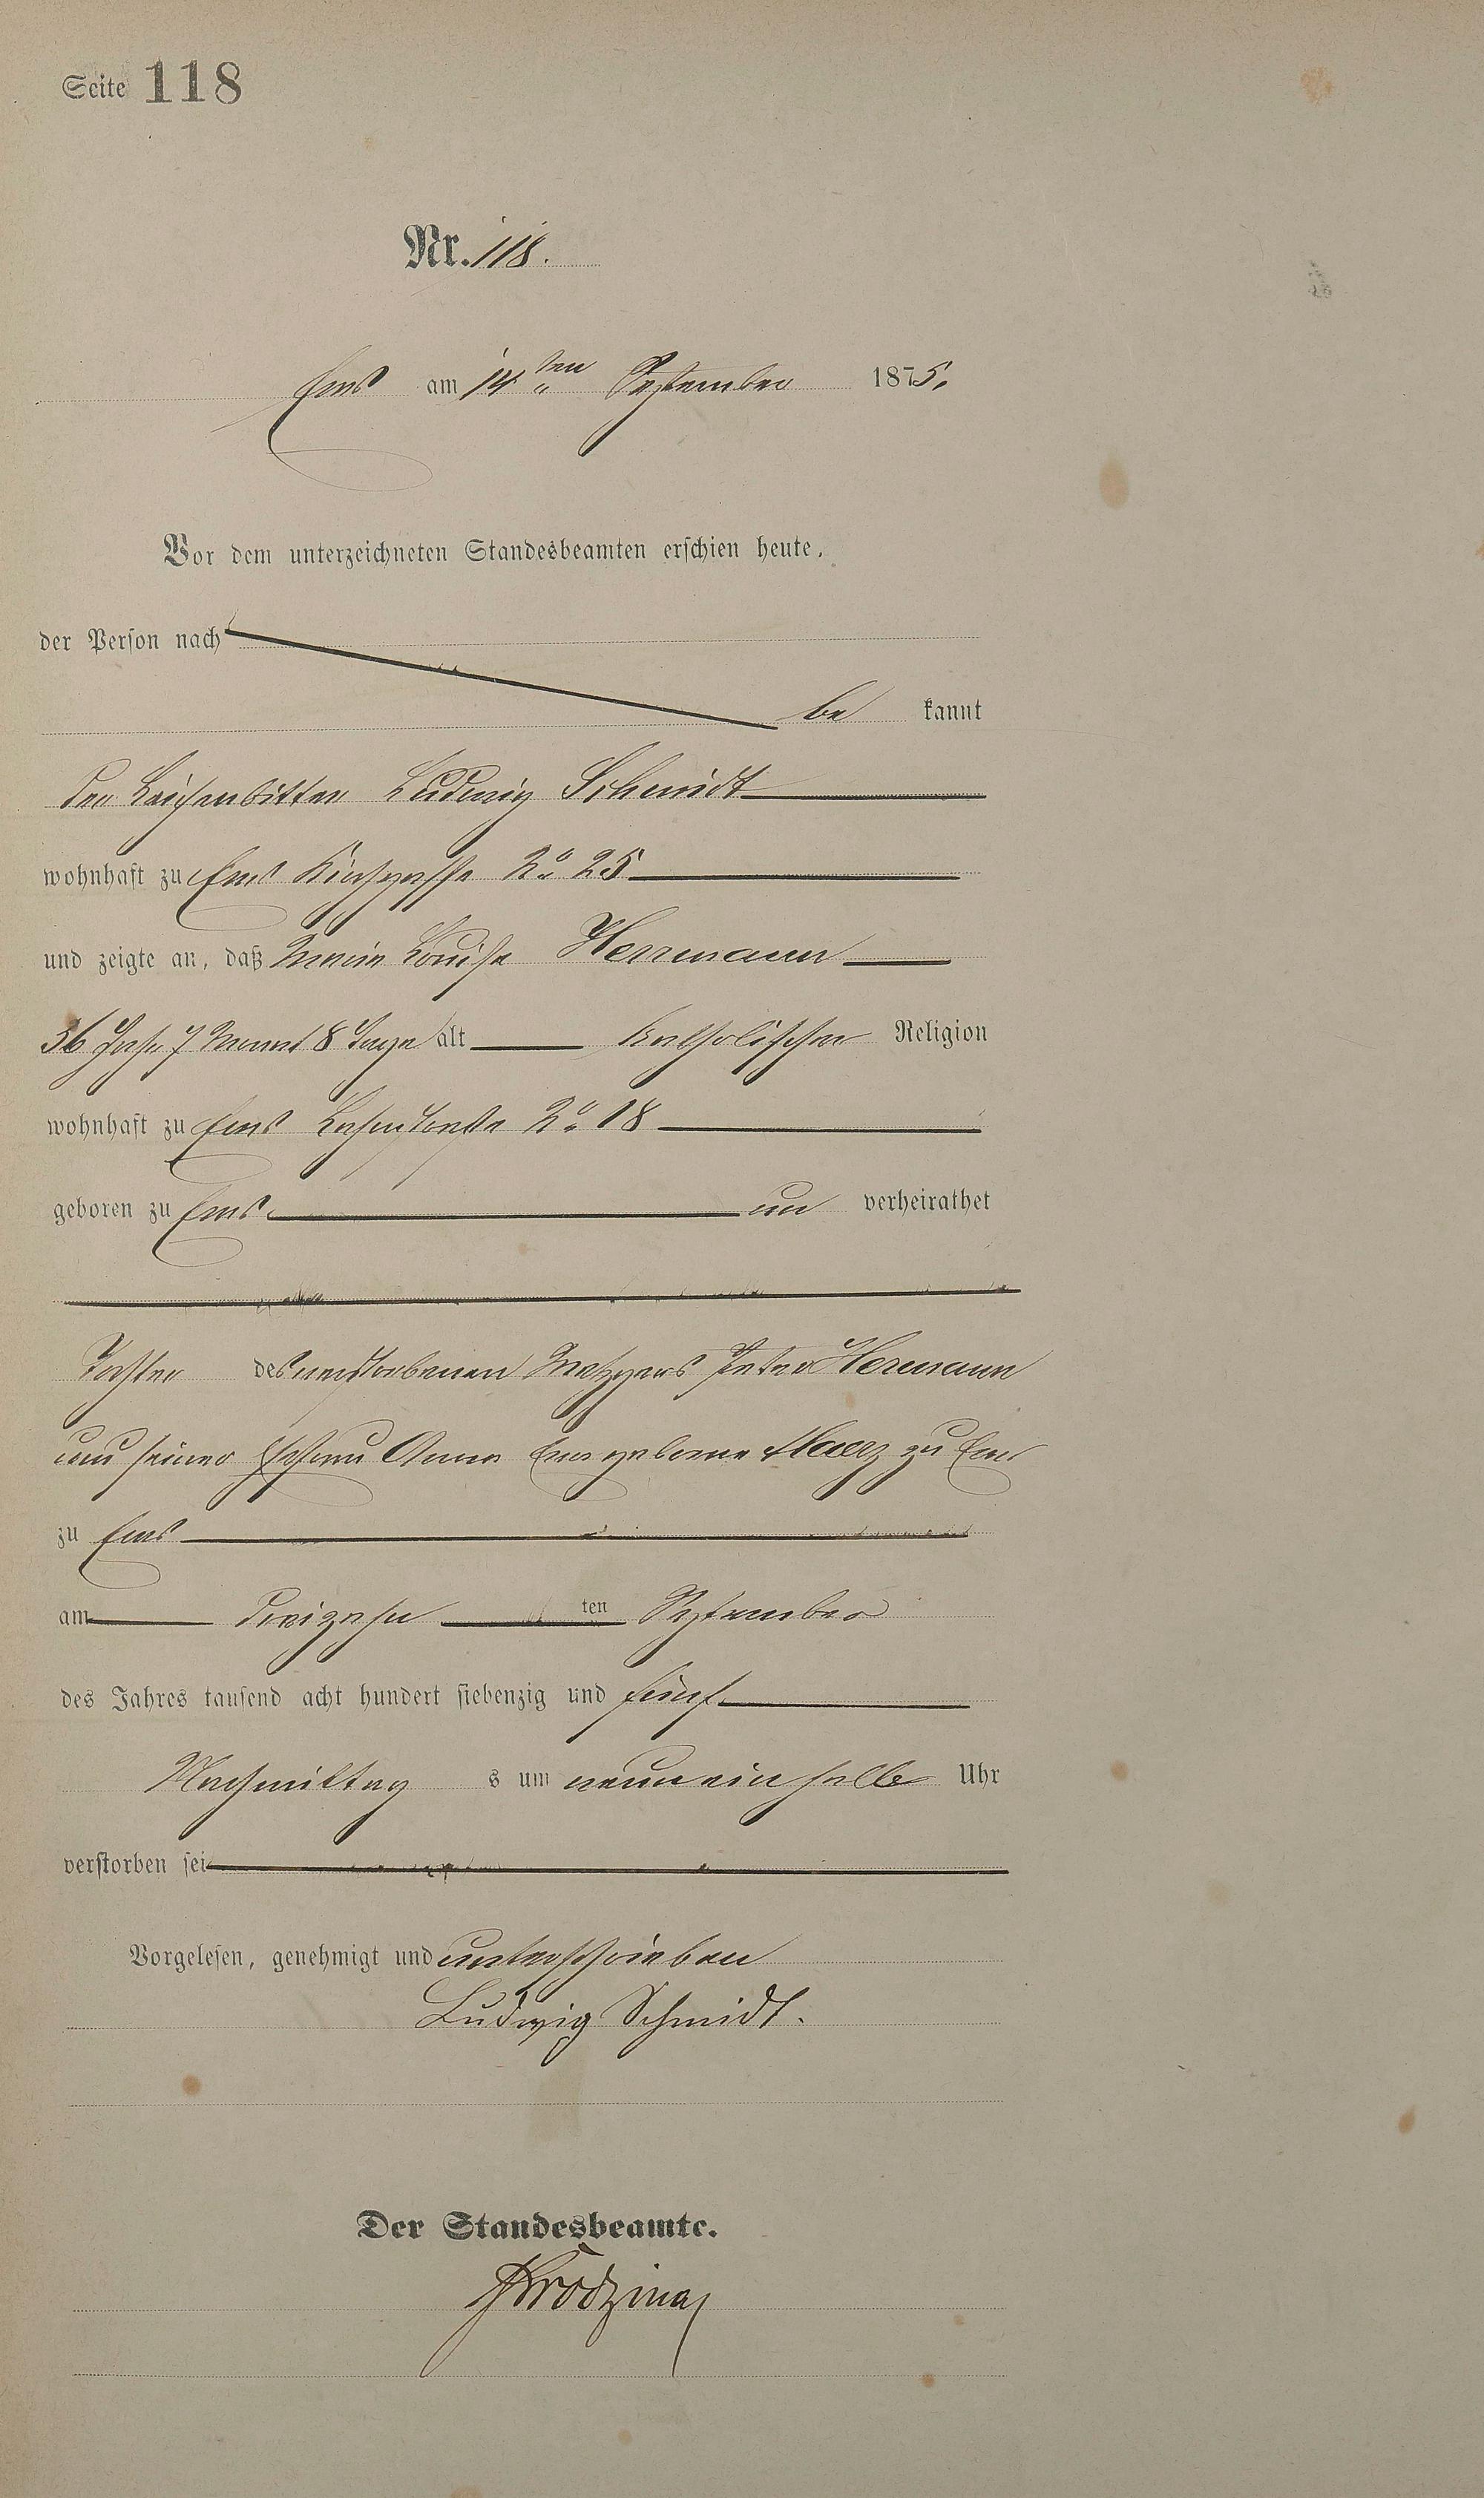 Seite 118
Nr. 118.
Ems am 14ten September 1875.
Vor dem unterzeichneten Standesbeamten erschien heute,
der Person nach
be kannt
der Leichenbitter Ludwig Schmidt
wohnhaft zu Ems Kirchgasse No 25
und zeigte an, daß Maria Louise Herrmann
36 Jahr 7 Monat 8 Tage alt Katholischer Religion
wohnhaft zu Ems No 18
geboren zu Ems. un verheirathet
Tochter des verstorbenen Metzgers Peter Hermann
und seiner Ehefrau Anna geborne zu Ems
zu Ems
am Dreizehn ten September
des Jahres tausend acht hundert siebenzig und fünf
Nachmittag s um neun ein halb Uhr
verstorben sei
Vorgelesen, genehmigt und unterschrieben
Ludwig Schmidt.
Der Standesbeamte.